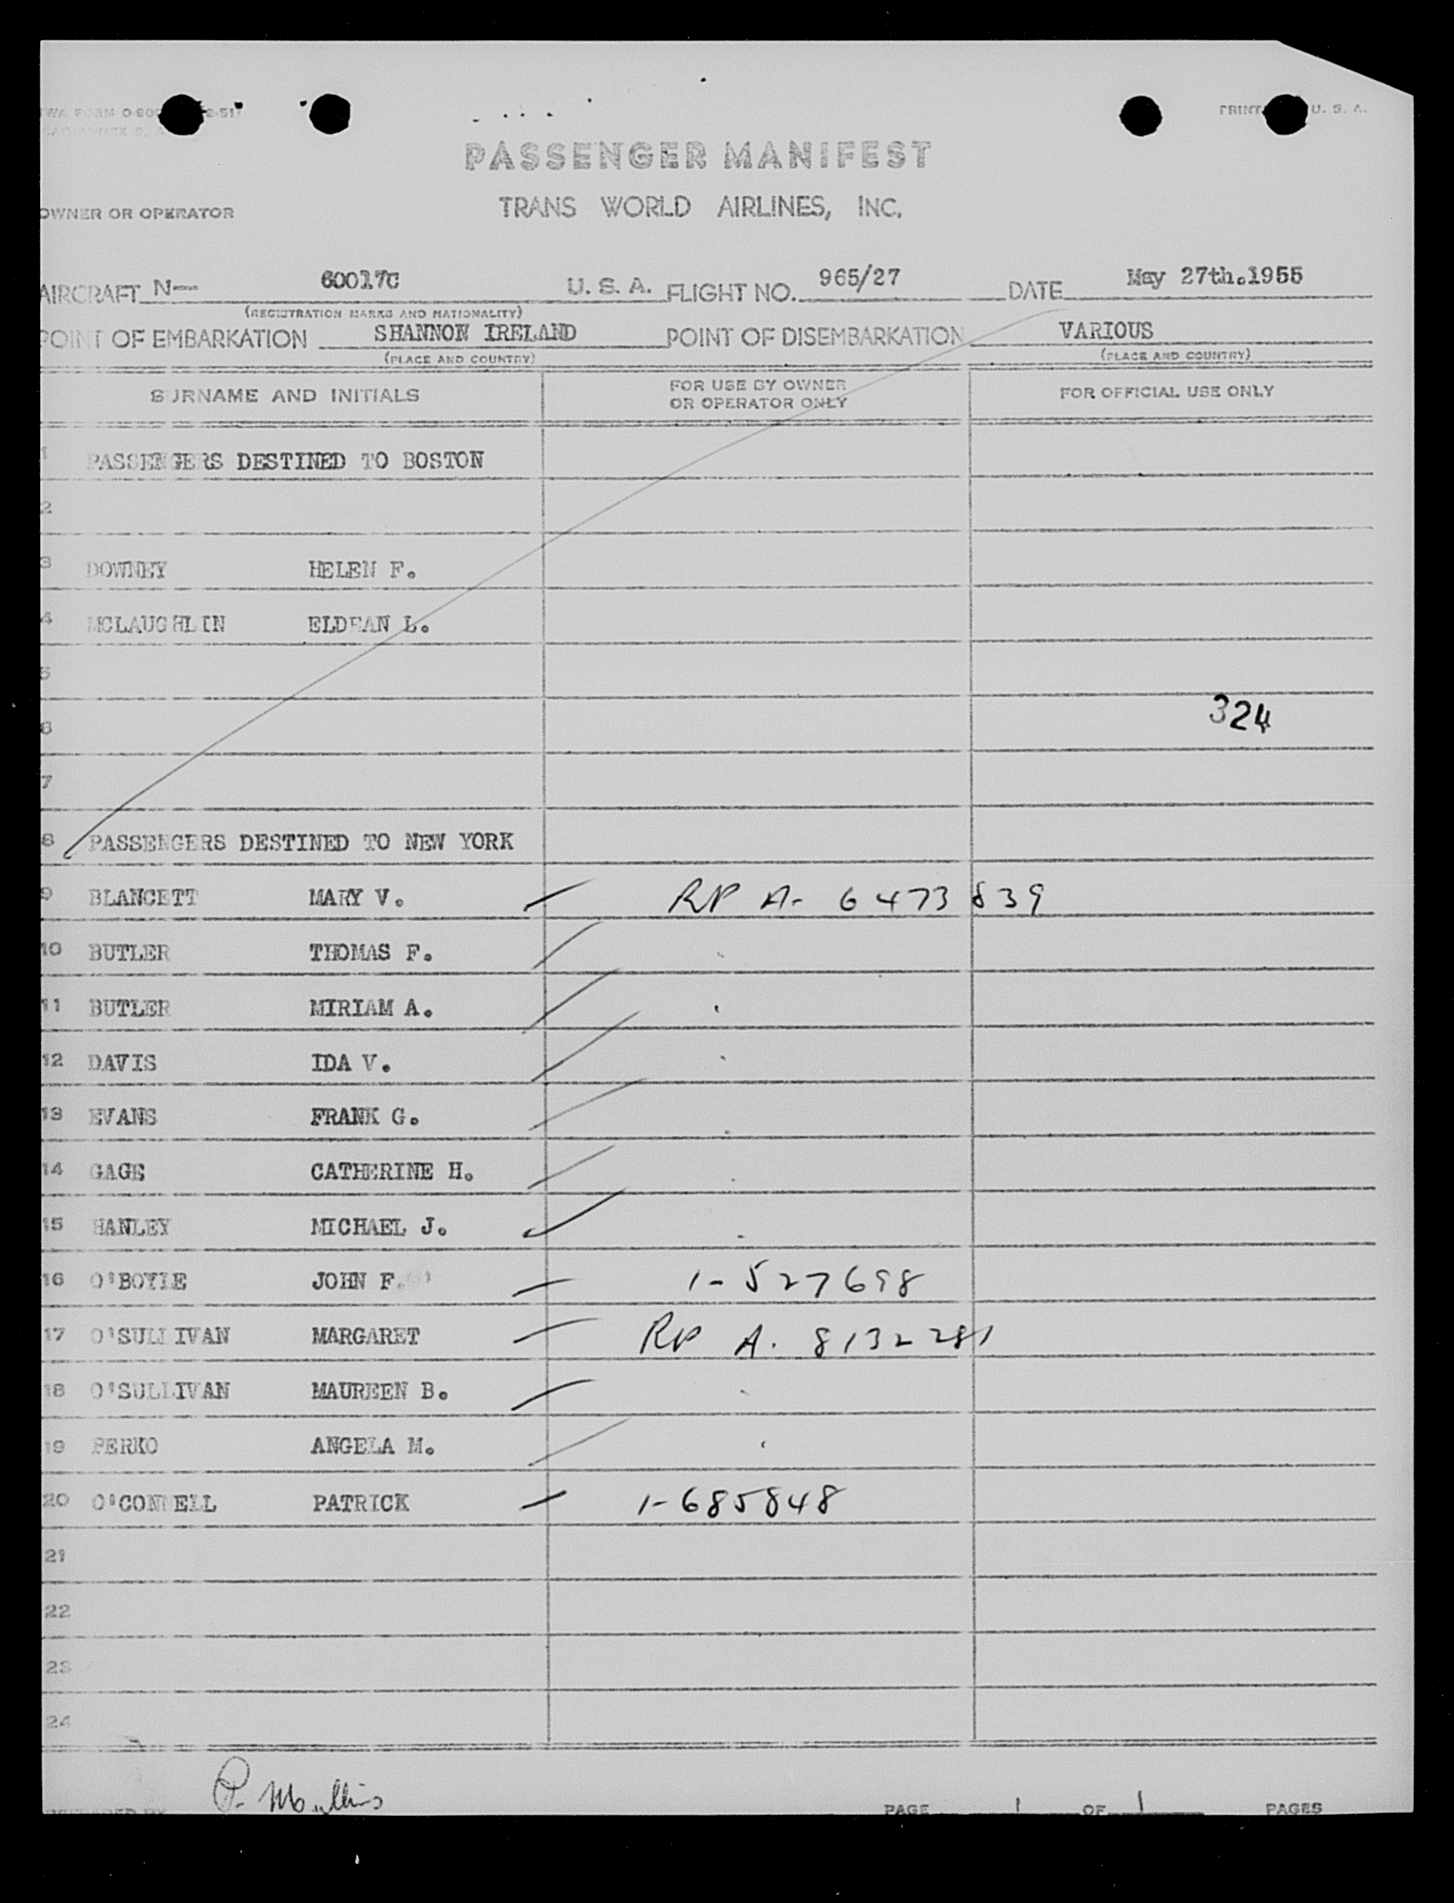 PRINTED U. S. A.
PASSENGER MANIFEST
OWNER OR OPERATOR TRANS WORLD AIRLINES, INC.
AIRCRAFT N— 60017C U. S. A. FLIGHT NO. 965/27 DATE May 27th.1955
(REGISTRATION MARKS AND NATIONALITY)
POINT OF EMBARKATION SHANNON IRELAND POINT OF DISEMBARKATION VARIOUS
(PLACE AND COUNTRY) (PLACE AND COUNTRY)
SURNAME AND INITIALS FOR USE BY OWNER OR OPERATOR ONLY FOR OFFICIAL USE ONLY
1 PASSENGERS DESTINED TO BOSTON
2
3 DOWNEY HELEN F.
4 MCLAUGHLIN ELDEAN L.
5
6 324
7
8 PASSENGERS DESTINED TO NEW YORK
9 BLANCETT MARY V. RP A- 6473839
10 BUTLER THOMAS F.
11 BUTLER MIRIAM A.
12 DAVIS IDA V.
13 EVANS FRANK G.
14 GAGE CATHERINE H.
15 HANLEY MICHAEL J.
16 O'BOYLE JOHN F. 1-527698
17 O'SULLIVAN MARGARET RP A. 8132281
18 O'SULLIVAN MAUREEN B.
19 PERKO ANGELA M.
20 O'CONNELL PATRICK 1-685848
21
22
23
24
P. Mullins
PREPARED BY PAGE 1 OF 1 PAGES